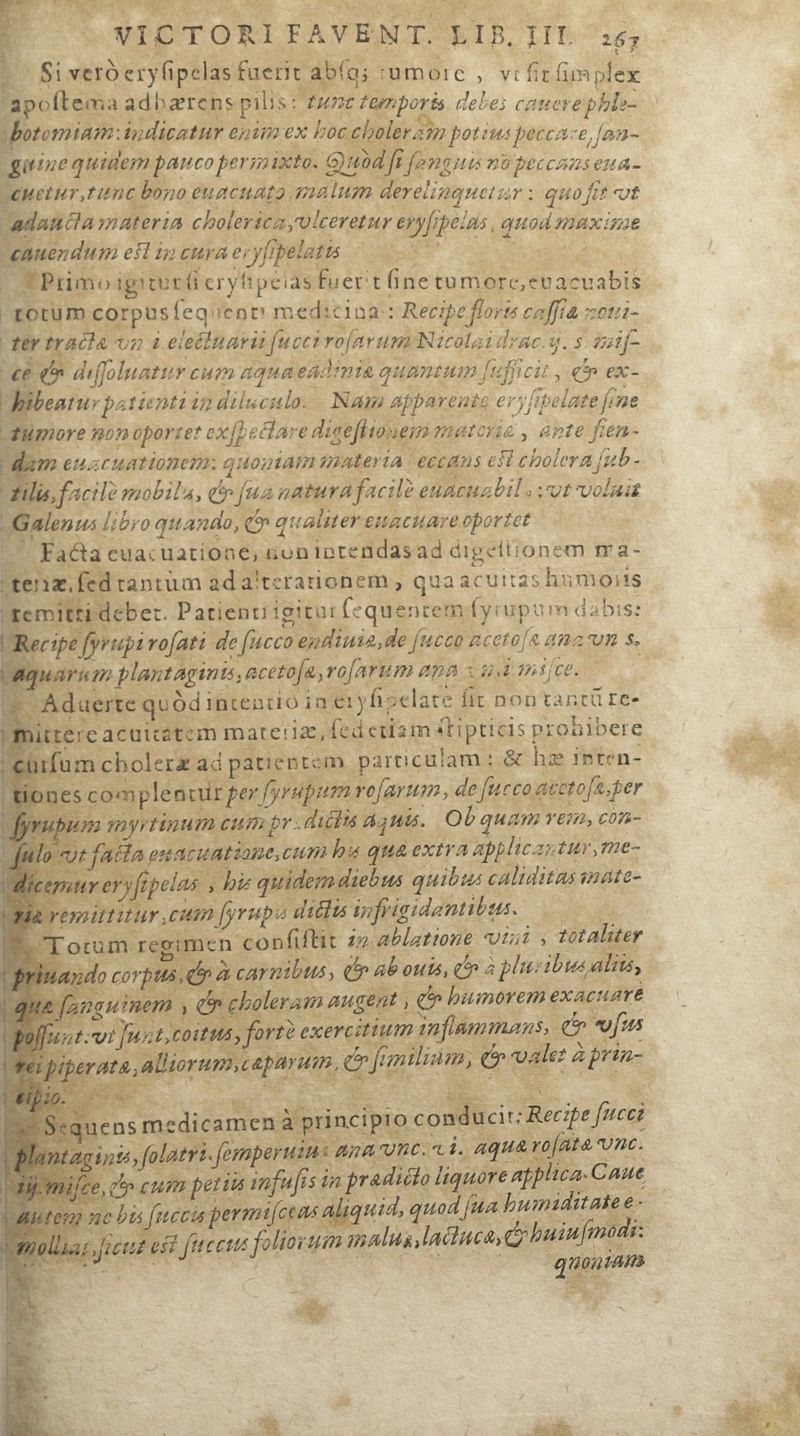 VICTORI FAVENT. LIB. III. 267
Si verò eryſipelas fuerit abſq; tumore , vt ſit ſimplex
apoſtema adhærens pilis: tunc temporis debes cauere phle-
botomiam: indicatur enim ex hoc choleram potius peccare, ſan-
guine quidem pauco permixto. Quod ſi ſanguis nō peccans eua-
cuetur, tunc bono euacuato malum derelinquetur : quo fit vt
adaucta materia cholerica, vlceretur eryſipelas, quod maxime
cauendum eſt in cura eryſipelatis
Primo igitur ſi eryſipelas fuerit ſine tumore, euacuabis
totum corpus ſequenti medicina : Recipe floris caſſiæ noui-
ter tractæ vn i. electuarii ſucci roſarum Nicolai drac. ij. s. miſ-
ce & diſſoluatur cum aqua endiuiæ quantum ſufficit, & ex-
hibeatur patienti in diluculo. Nam apparente eryſipelate ſine
tumore non oportet exſpectare digeſtionem materiæ , ante fien-
dam euacuationem: quoniam materia eccans eſt cholera ſub-
tilis, facile mobilis, & ſua natura facile euacuabil :vt voluit
Galenus libro quando, & qualiter euacuare oportet
Facta euacuatione, non intendas ad digeſtionem ma-
teriæ, ſed tantùm ad alterationem , qua acuitas humoris
remitti debet. Patienti igitur ſequentem ſyrupum dabis:
Recipe ſyrupi roſati de ſucco endiuiæ, de ſucco acetoſæ ana vn s.
aquarum plantaginis, acetoſæ, roſarum ana vn. i miſce.
Aduerte quòd intentio in eryſipelate ſit non tantū re-
mittere acuitatem materiæ, ſed etiam ſtipticis prohibere
curſum choleræ ad patientem particulam : & hæ inten-
tiones complentur per ſyrupum roſarum, de ſucco acetoſæ, per
ſyrupum myrtinum cum prædictis aquis. Ob quam rem, con-
ſulo vt facta euacuatione, cum his quæ extra applicantur, me-
dicemur eryſipelas , his quidem diebus quibus caliditas mate-
riæ remittitur, cum ſyrupis dictis infrigidantibus.
Totum regimen conſiſtit in ablatione vini , totaliter
priuando corpus, & à carnibus, & ab ouis, & à pluribus aliis,
quæ ſanguinem , & choleram augent, & humorem exacuare
poſſunt: vt ſunt, coitus, forte exercitium inflammans, & vſus
rei piperatæ, alliorum, cæparum, & ſimilium, & valet à prin-
cipio.
Sequens medicamen à principio conducit: Recipe ſucci
plantaginis, ſolatri, ſemperuiu ana vnc. i. aquæ roſatæ vnc.
iij. miſce, & cum petiis infuſis in prædicto liquore applica. Caue
autem ne his ſuccis permiſceas aliquid, quod ſua humiditate e-
molliat, ſicut eſt ſuccus foliorum maluæ, lactucæ, & huiuſmodi:
qnoniam